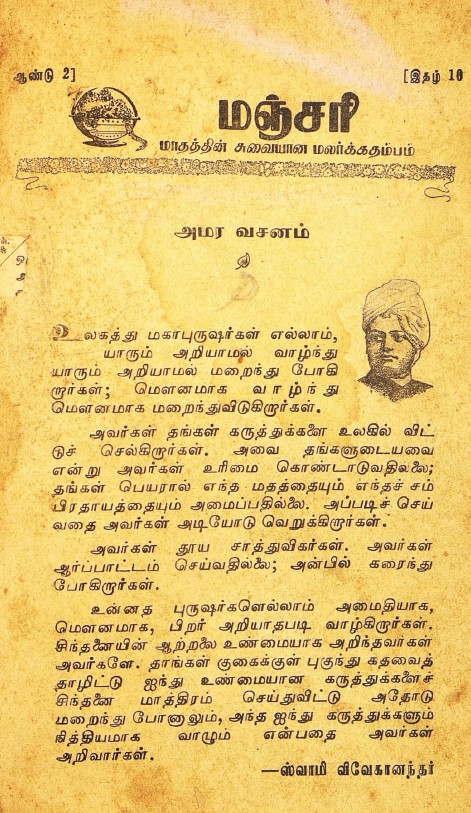 ஆண்டு 2]
[இதழ் 10
மஞ்சரி
மாதத்தின் சுவையான மலர்க்கதம்பம்
அமர வசனம்
உலகத்து மகாபுருஷர்கள் எல்லாம்,
யாரும் அறியாமல் வாழ்ந்து
யாரும் அறியாமல் மறைந்து போகி
றார்கள்; மௌனமாக வாழ்ந்து
மௌனமாக மறைந்துவிடுகிறார்கள்.
அவர்கள் தங்கள் கருத்துக்களை உலகில் விட்
டுச் செல்கிறார்கள். அவை தங்களுடையவை
என்று அவர்கள் உரிமை கொண்டாடுவதில்லை;
தங்கள் பெயரால் எந்த மதத்தையும் எந்தச் சம்
பிரதாயத்தையும் அமைப்பதில்லை. அப்படிச் செய்
வதை அவர்கள் அடியோடு வெறுக்கிறார்கள்.
அவர்கள் தூய சாத்துவிகர்கள். அவர்கள்
ஆர்ப்பாட்டம் செய்வதில்லை; அன்பில் கரைந்து
போகிறார்கள்.
உன்னத புருஷர்களெல்லாம் அமைதியாக,
மௌனமாக, பிறர் அறியாதபடி வாழ்கிறார்கள்.
சிந்தனையின் ஆற்றலை உண்மையாக அறிந்தவர்கள்
அவர்களே. தாங்கள் குகைக்குள் புகுந்து கதவைத்
தாழிட்டு ஐந்து உண்மையான கருத்துக்களைச்
சிந்தனை மாத்திரம் செய்துவிட்டு அதோடு
மறைந்து போனாலும், அந்த ஐந்து கருத்துக்களும்
நித்தியமாக வாழும் என்பதை அவர்கள்
அறிவார்கள்.
—ஸ்வாமி விவேகானந்தர்